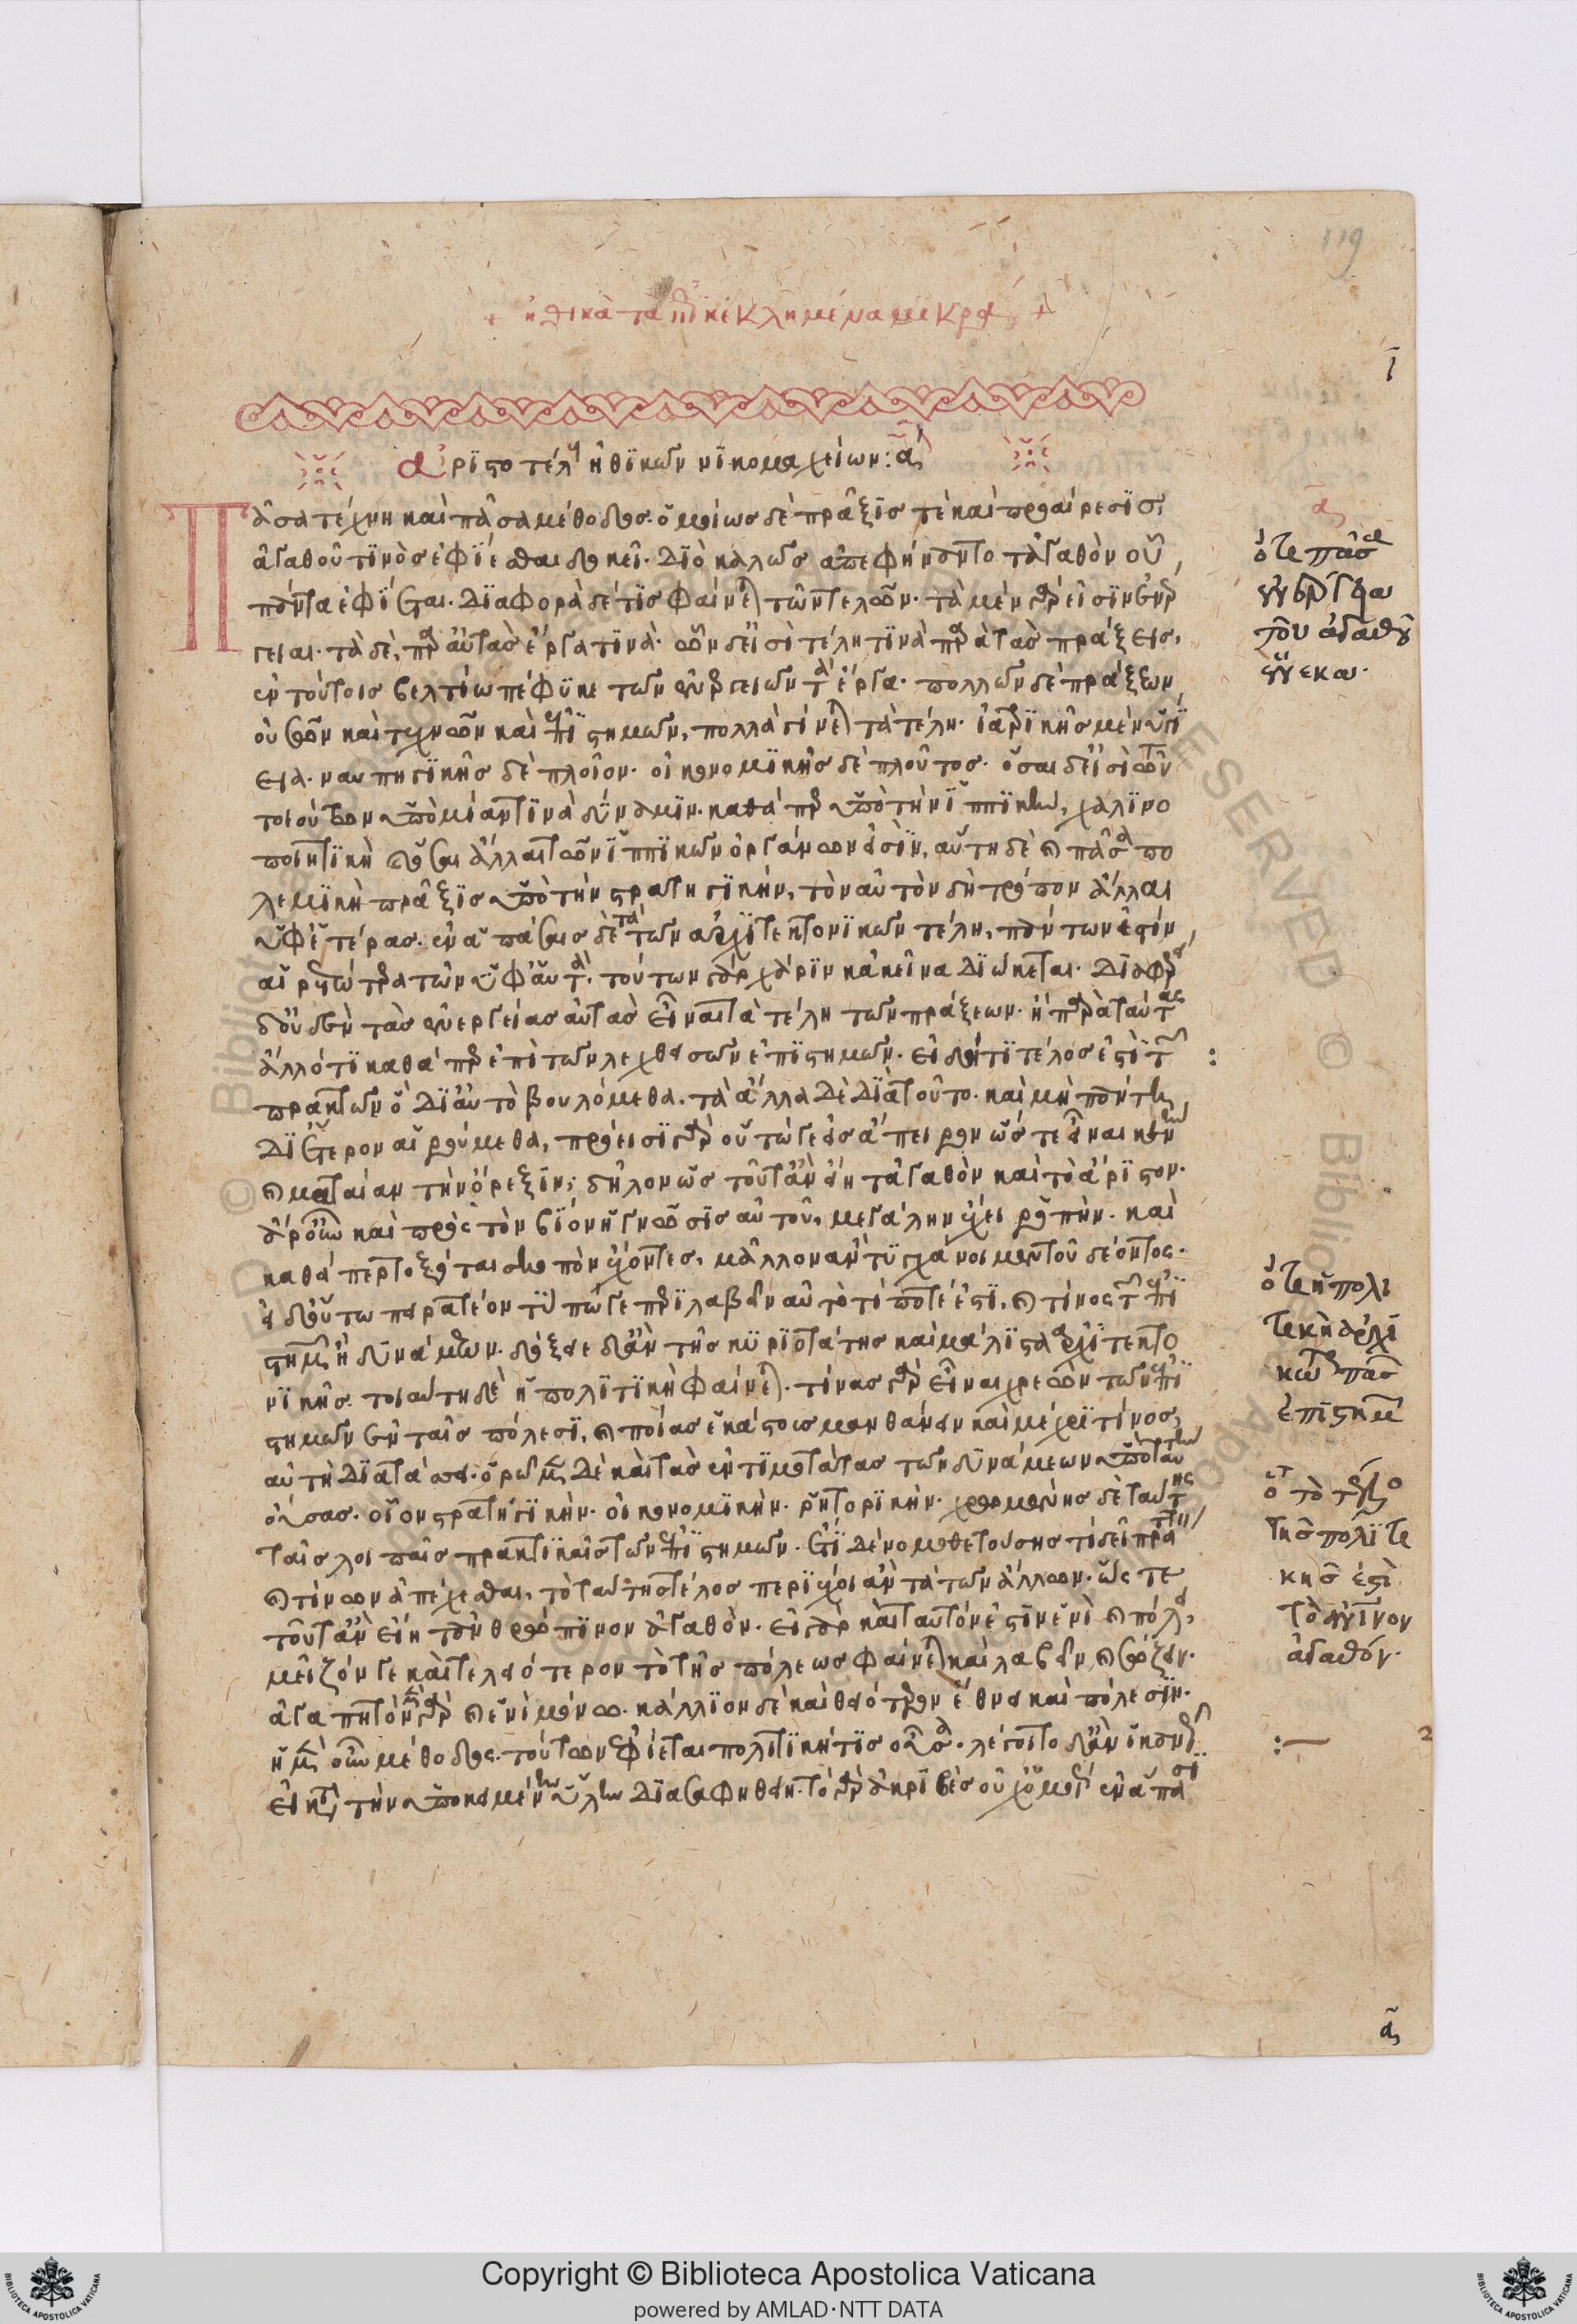 119
+ ἠθικὰ τὰ ἐπικεκλημένα μικρὰ +
ἀριστοτέλους ἠθϊκῶν νϊκομαχείων: α
Πᾶσα τέχνη καὶ πᾶσα μέθοδος. ὁμοίως δὲ πρᾶξϊς τὲ καὶ προαίρεσϊς,
ἀγαθοῦ τϊνὸς ἐφΐεσθαι δοκεῖ. Δϊὸ καλῶς ἀπεφήναντο τἀγαθὸν οὗ
πάντα ἐφΐεται. Δϊαφορὰ δέ τϊς φαίνεται τῶν τελῶν. τὰ μὲν γάρ εἰσϊν ἐνέρ
γειαι. τὰ δὲ, παρ' αὐτὰς ἔργα τϊνά. ὧν δ' εἰσὶ τέλη τϊνὰ παρὰ τὰς πράξεις,
ἐν τούτοις βελτίω πέφϋκε τῶν ἐνεργειῶν τὰ ἔργα. πολλῶν δὲ πράξεων
οὐσῶν καὶ τεχνῶν καὶ ἐπϊστημῶν, πολλὰ γίνεται τὰ τέλη. ἰατρϊκῆς μὲν ὑγί
εια. ναυπηγϊκῆς δὲ πλοῖον. οἰκονομϊκῆς δὲ πλοῦτος. ὅσαι δ' εἰσὶ τῶν
τοιούτων ὑπὸ μίαν τϊνὰ δύναμϊν. καθάπερ ὑπὸ τὴν ἱππϊκὴν, χαλϊνο
ποιητϊκὴ καὶ ὅσαι ἄλλαι τῶν ἱππϊκῶν ὀργάνων εἰσϊν, αὕτη δὲ καὶ πᾶσα πο
λεμϊκὴ πρᾶξϊς ὑπὸ τὴν στρατηγϊκήν, τὸν αὐτὸν δὴ τρόπον ἄλλαι
ὑφ' ἑτέρας. ἐν ἁπάσαις δὲ τὰ τῶν ἀρχϊτεκτονϊκῶν τέλη, πάντων ἐστϊν
αἱρετώτερα τῶν ὑφ' αὑτά. τούτων γὰρ χάρϊν κἀκεῖνα Δϊώκεται. Δϊαφέρει
δ' οὐδὲν τὰς ἐνεργείας αὐτὰς εἶναι τὰ τέλη τῶν πράξεων. ἢ παρὰ ταύτας
ἄλλό τϊ καθάπερ ἐπὶ τῶν λεχθεισῶν ἐπϊστημῶν. εἰ δή τϊ τέλος ἐστὶ τῶν
πρακτῶν ὃ Δϊ' αὑτὸ βουλόμεθα. τὰ ἄλλα Δὲ Δϊὰ τοῦτο. καὶ μὴ πάντα
Δϊ' ἕτερον αἱρούμεθα, πρόεισϊ γὰρ οὕτώ γε εἰς ἄπειρον ὥστε εἶναι κενὴν
καὶ ματαίαν τὴν ὄρεξϊν, δῆλον ὡς τοῦτ' ἂν εἴη τἀγαθὸν καὶ τὸ ἄρϊστον.
ἆρ' οὖν καὶ πρὸς τὸν βΐον ἡ γνῶσϊς αὐτοῦ, μεγάλην ἔχει ῥοπήν. καὶ
καθάπερ τοξόται σκοπὸν ἔχοντες, μᾶλλον ἂν τϋγχάνοιμεν τοῦ δέοντος.
εἰ δ' οὕτω πειρατέον τύπῳ γε περϊλαβεῖν αὐτὸ τί ποτέ ἐστϊ, καὶ τίνος τῶν ἐπϊ
στημῶν ἢ δυνάμεων. δόξειε δ' ἂν τῆς κϋρϊοτάτης καὶ μάλϊστα ἀρχϊτεκτο
νϊκῆς. τοιαύτη δὲ ἡ πολϊτϊκὴ φαίνεται. τίνας γὰρ εἶναι χρεὼν τῶν ἐπϊ
στημῶν ἐν ταῖς πόλεσϊ, καὶ ποίας ἑκάστους μανθάνειν καὶ μέχρϊ τίνος,
αὐτὴ Δϊατάσσει. ὁρῶμεν Δὲ καὶ τὰς ἐντϊμοτάτας τῶν δυνάμεων ὑπὸ ταύτην
οὔσας. οἷον στρατηγϊκήν. οἰκονομϊκήν. ῥητορϊκήν. χρωμένης δὲ ταύτης
ταῖς λοιπαῖς πρακτϊκαῖς τῶν ἐπϊστημῶν. ἔτϊ Δὲ νομοθετούσης τί δεῖ πράττειν
καὶ τίνων ἀπέχεσθαι, τὸ ταύτης τέλος περϊέχοι ἂν τὰ τῶν ἄλλων. ὥστε
τοῦτ' ἂν εἴη τἀνθρώπϊνον ἀγαθόν. εἰ γὰρ καὶ ταυτόν ἐστϊν ἑνὶ καὶ πόλει,
μεῖζόν γε καὶ τελειότερον τὸ τῆς πόλεως φαίνεται καὶ λαβεῖν καὶ σῴζειν.
ἀγαπητὸν μὲν γὰρ καὶ ἑνὶ μόνῳ. κάλλϊον δὲ καὶ θειότερον ἔθνει καὶ πόλεσϊν.
ἡ μὲν οὖν μέθοδος. τούτων ἐφίεται πολιτϊκή τϊς οὖσα. λέγοιτο δ' ἂν ἱκανῶς
εἰ κατὰ τὴν ὑποκειμένην ὕλην Δϊασαφηθείη. τὸ γὰρ ἀκρϊβὲς οὐχ ὁμοίως ἐν ἅπασϊ
α
ὅτι πᾶσα
ἐνέργεια
του ἀγαθοῦ
ἕνεκα.
ὅτι ἡ πολι
τικὴ ἀρχι
κωτέρα πασῶν
ἐπιστημῶν
ὅτι τὸ τέλος
τῆς πολϊτι
κῆς ἐστὶ
τὸ ἀνθρώπινον
ἀγαθόν.
α
Copyright © Biblioteca Apostolica Vaticana
powered by AMLAD·NTT DATA